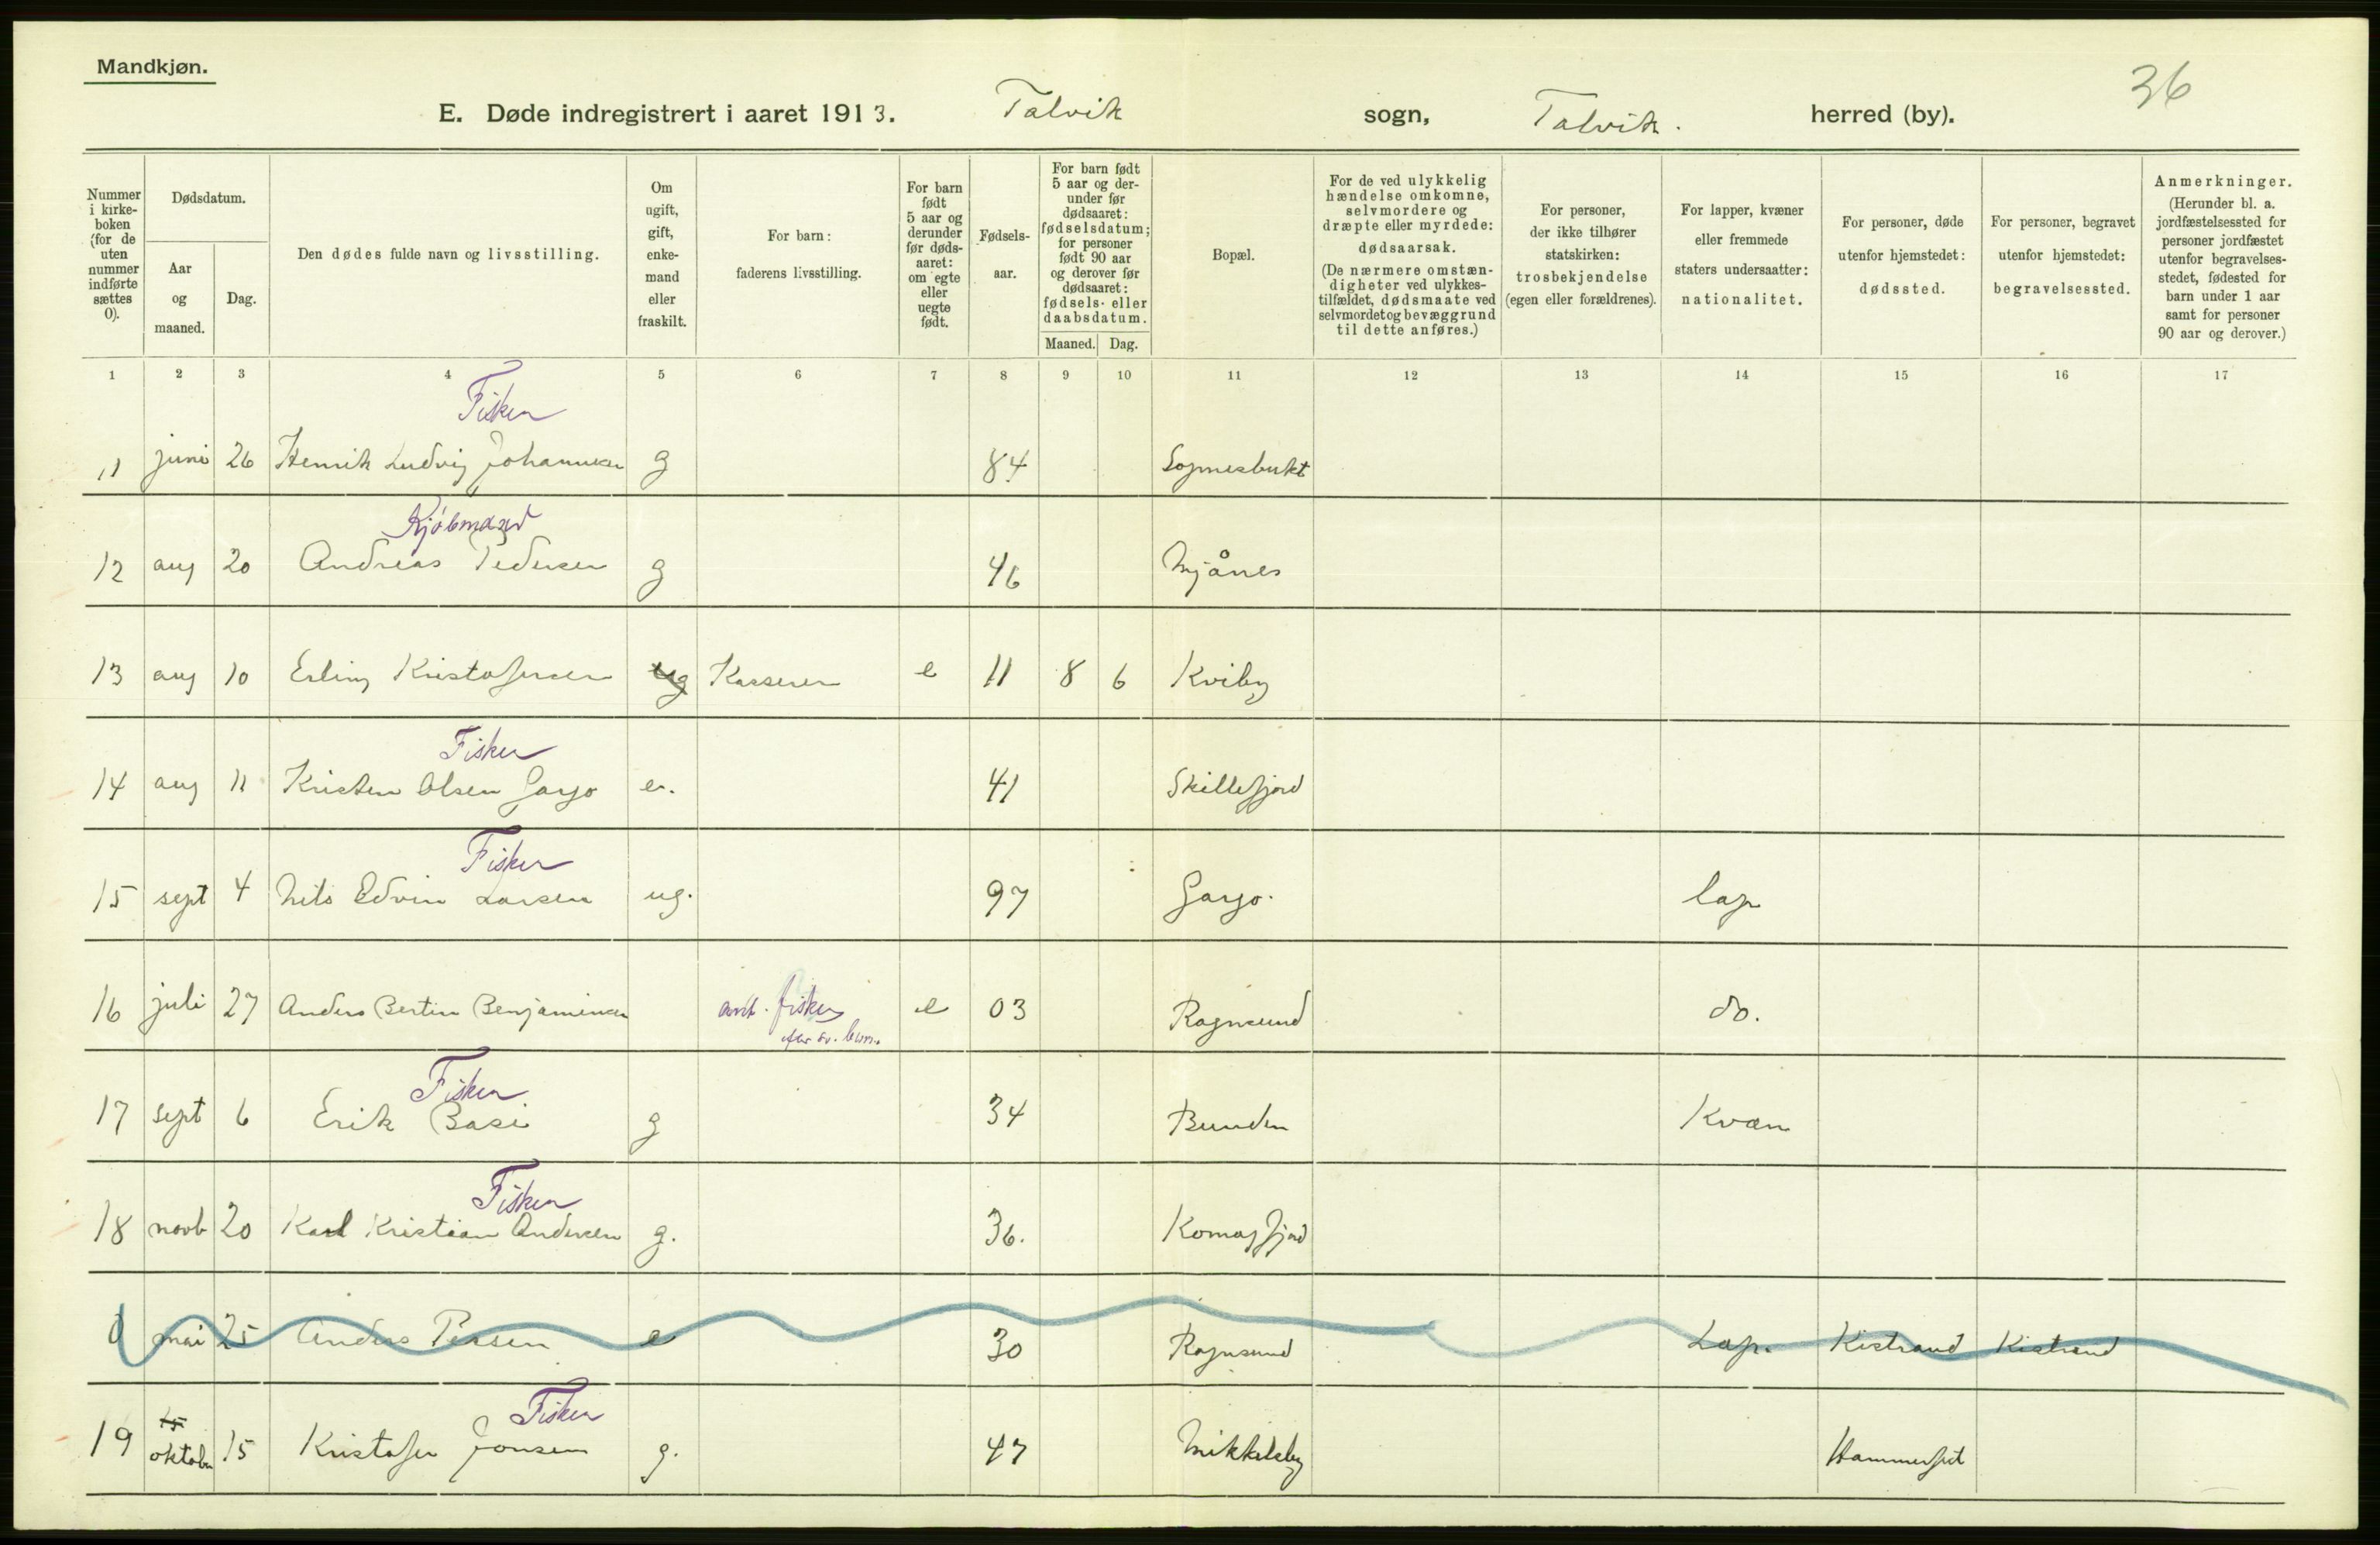 Mandkjøn.
36
E. Døde indregistrert i aaret 1913. Talvik sogn, Talvik. herred (by).
Nummer i kirke-boken (for de uten nummer indførte sættes 0).
Dødsdatum.
Aar og maaned.
Dag.
Den dødes fulde navn og livsstilling.
Om ugift, gift, enke-mand eller fraskilt.
For barn: faderens livsstilling.
For barn født 5 aar og derunder før døds-aaret: om egte eller uegte født.
Fødsels-aar.
For barn født 5 aar og der-under før dødsaaret: fødselsdatum; for personer født 90 aar og derover før dødsaaret: fødsels- eller daabsdatum.
Maaned. Dag.
Bopæl.
For de ved ulykkelig hændelse omkomne, selvmordere og dræpte eller myrdede: dødsaarsak. (De nærmere omstæn-digheter ved ulykkes-tilfældet, dødsmaate ved selvmordet og bevæggrund til dette anføres.)
For personer, der ikke tilhører statskirken: trosbekjendelse (egen eller forældrenes).
For lapper, kvæner eller fremmede staters undersaatter: nationalitet.
For personer, døde utenfor hjemstedet: dødssted.
For personer, begravet utenfor hjemstedet: begravelsessted.
Anmerkninger. (Herunder bl. a. jordfæstelsessted for personer jordfæstet utenfor begravelses-stedet, fødested for barn under 1 aar samt for personer 90 aar og derover.)
1 2 3 4 5 6 7 8 9 10 11 12 13 14 15 16 17
Fisker
11 juni 26 Henrik Ludvig Johannesen g 84 Sopnesbukt
Kjøbmand
12 aug 20 Andreas Pedersen g 46 Mjånes
13 aug 10 Erling Kristofersen ug Kasserer e 11 8 6 Kviby
Fisker
14 aug 11 Kristen Olsen Gargo e. 41 Skillefjord
Fisker
15 sept 4 Nils Edvin Larsen ug. 97 Gargo. lap
16 juli 27 Anders Bertin Benjaminsen ant. fisker e 03 Rognsund do.
Fisker
17 sept 6 Erik Basi g 34 Bunden Kvæn
Fisker
18 novb 20 Karl Kristian Andersen g. 36. Komagfjord
0 mai 25 Anders Persen e 30 Rognsund Lap. Kistrand Kistrand
Fisker
15
19 oktober 15 Kristofer Jonsen g. 47 Mikkelsby Hammerfest